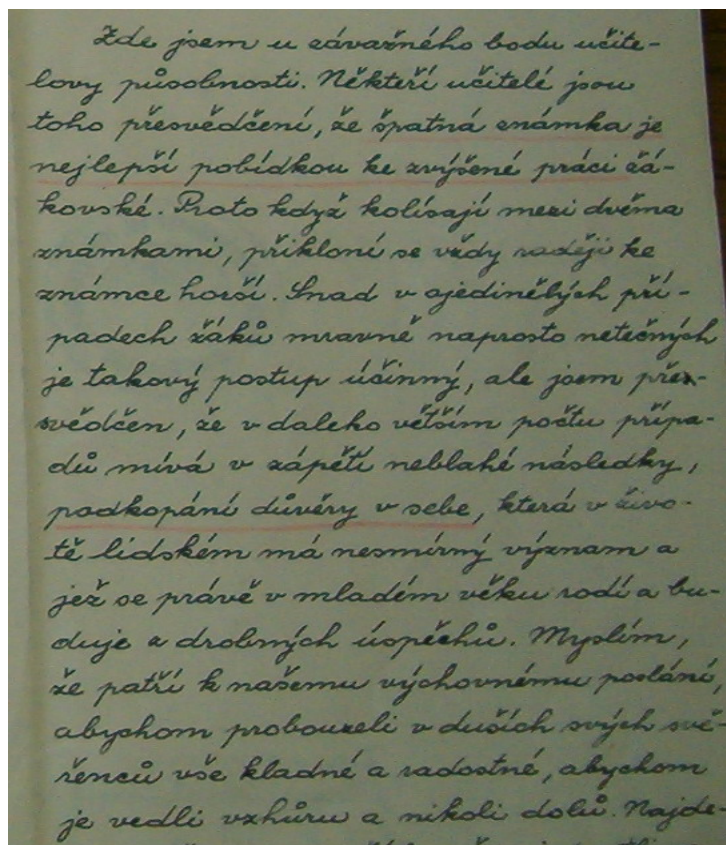 Zde jsem u závažného bodu učite-
lovy působnosti. Někteří učitelé jsou
toho přesvědčení, že špatná známka je
nejlepší pobídkou ke zvýšené práci žá-
kovské. Proto když kolísají mezi dvěma
známkami, přikloní se vždy raději ke
známce horší. Snad v ojedinělých pří-
padech žáků mravně naprosto netečných
je takový postup účinný, ale jsem pře-
svědčen, že v daleko větším počtu přípa-
dů mívá v zápětí neblahé následky,
podkopání důvěry v sebe, která v živo-
tě lidském má nesmírný význam a
jež se právě v mladém věku rodí a bu-
duje z drobných úspěchů. Myslím,
že patří k našemu výchovnému poslání,
abychom probouzeli v duších svých svě-
řenců vše kladné a radostné, abychom
je vedli vzhůru a nikoli dolů. Najde-